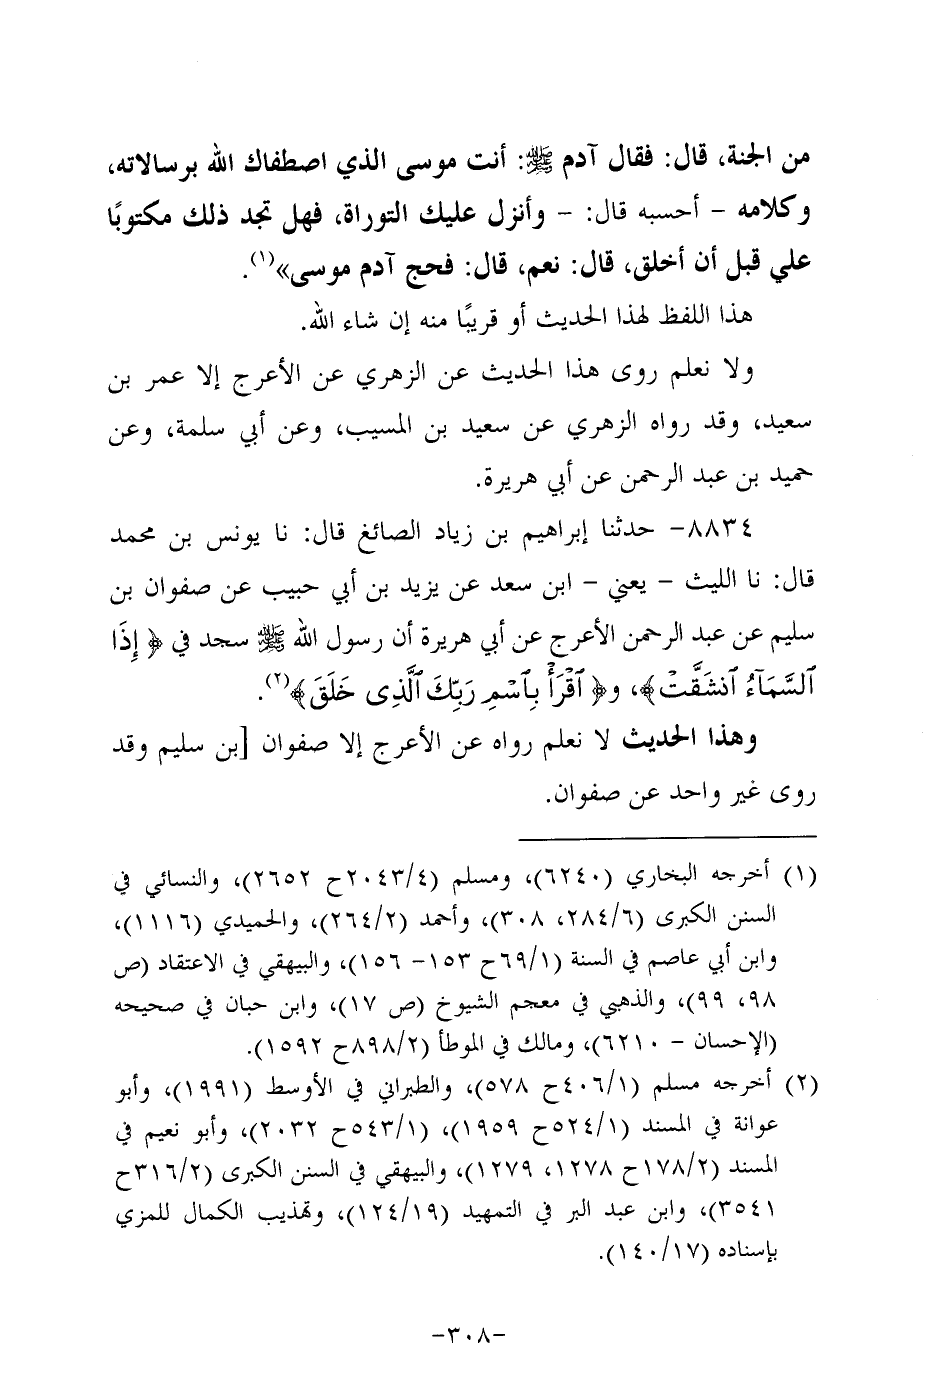 من الجنة، قال: فقال آدم ﷺ: أنت موسى الذي اصطفاك الله برسالاته،
وكلامه - أحسبه قال: - وأنزل عليك التوراة، فهل تجد ذلك مكتوبًا
علي قبل أن أخلق، قال: نعم، قال: فحج آدم موسى»(١).
هذا اللفظ لهذا الحديث أو قريبًا منه إن شاء الله.
ولا نعلم روى هذا الحديث عن الزهري عن الأعرج إلا عمر بن
سعيد، وقد رواه الزهري عن سعيد بن المسيب، وعن أبي سلمة، وعن
حميد بن عبد الرحمن عن أبي هريرة.
٨٨٣٤- حدثنا إبراهيم بن زياد الصائغ قال: نا يونس بن محمد
قال: نا الليث - يعني - ابن سعد عن يزيد بن أبي حبيب عن صفوان بن
سليم عن عبد الرحمن الأعرج عن أبي هريرة أن رسول الله ﷺ سجد في ﴿إِذَا
ٱلسَّمَآءُ ٱنشَقَّتْ﴾، و﴿ٱقْرَأْ بِٱسْمِ رَبِّكَ ٱلَّذِى خَلَقَ﴾(٢).
وهذا الحديث لا نعلم رواه عن الأعرج إلا صفوان [بن سليم وقد
روى غير واحد عن صفوان.
(١) أخرجه البخاري (٦٢٤٠)، ومسلم (٢٠٤٣/٤ح ٢٦٥٢)، والنسائي في
السنن الكبرى (٢٨٤/٦، ٣٠٨)، وأحمد (٢٦٤/٢)، والحميدي (١١١٦)،
وابن أبي عاصم في السنة (٦٩/١ح ١٥٣- ١٥٦)، والبيهقي في الاعتقاد (ص
٩٨، ٩٩)، والذهبي في معجم الشيوخ (ص ١٧)، وابن حبان في صحيحه
(الإحسان - ٦٢١٠)، ومالك في الموطأ (٨٩٨/٢ح ١٥٩٢).
(٢) أخرجه مسلم (٤٠٦/١ح ٥٧٨)، والطبراني في الأوسط (١٩٩١)، وأبو
عوانة في المسند (٥٢٤/١ح ١٩٥٩)، (٥٤٣/١ح ٢٠٣٢)، وأبو نعيم في
المسند (١٧٨/٢ح ١٢٧٨، ١٢٧٩)، والبيهقي في السنن الكبرى (٣١٦/٢ح
٣٥٤١)، وابن عبد البر في التمهيد (١٢٤/١٩)، وتهذيب الكمال للمزي
بإسناده (١٤٠/١٧).
-٣٠٨-